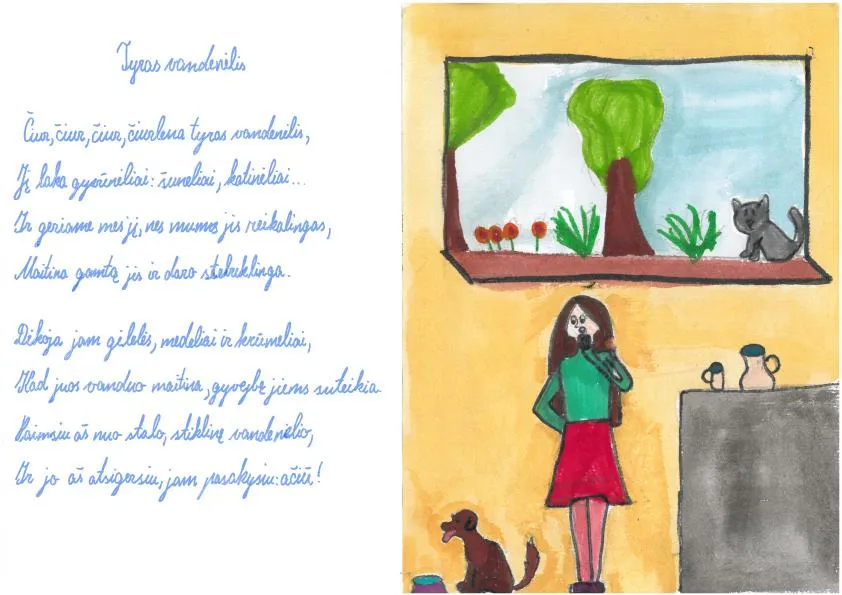 Tyras vandenėlis
Čiur, čiur, čiur, čiurlena tyras vandenėlis,
Jį laka gyvūnėliai: šuneliai, katinėliai...
Ir geriame mes jį, nes mums jis reikalingas,
Maitina gamtą jis ir daro stebuklinga.
Dėkoja jam gėlelės, medeliai ir krūmeliai,
Kad juos vanduo maitina, gyvybę jiems suteikia.
Paimsiu aš nuo stalo, stiklinę vandenėlio,
Ir jo aš atsigersiu, jam pasakysiu: ačiū!